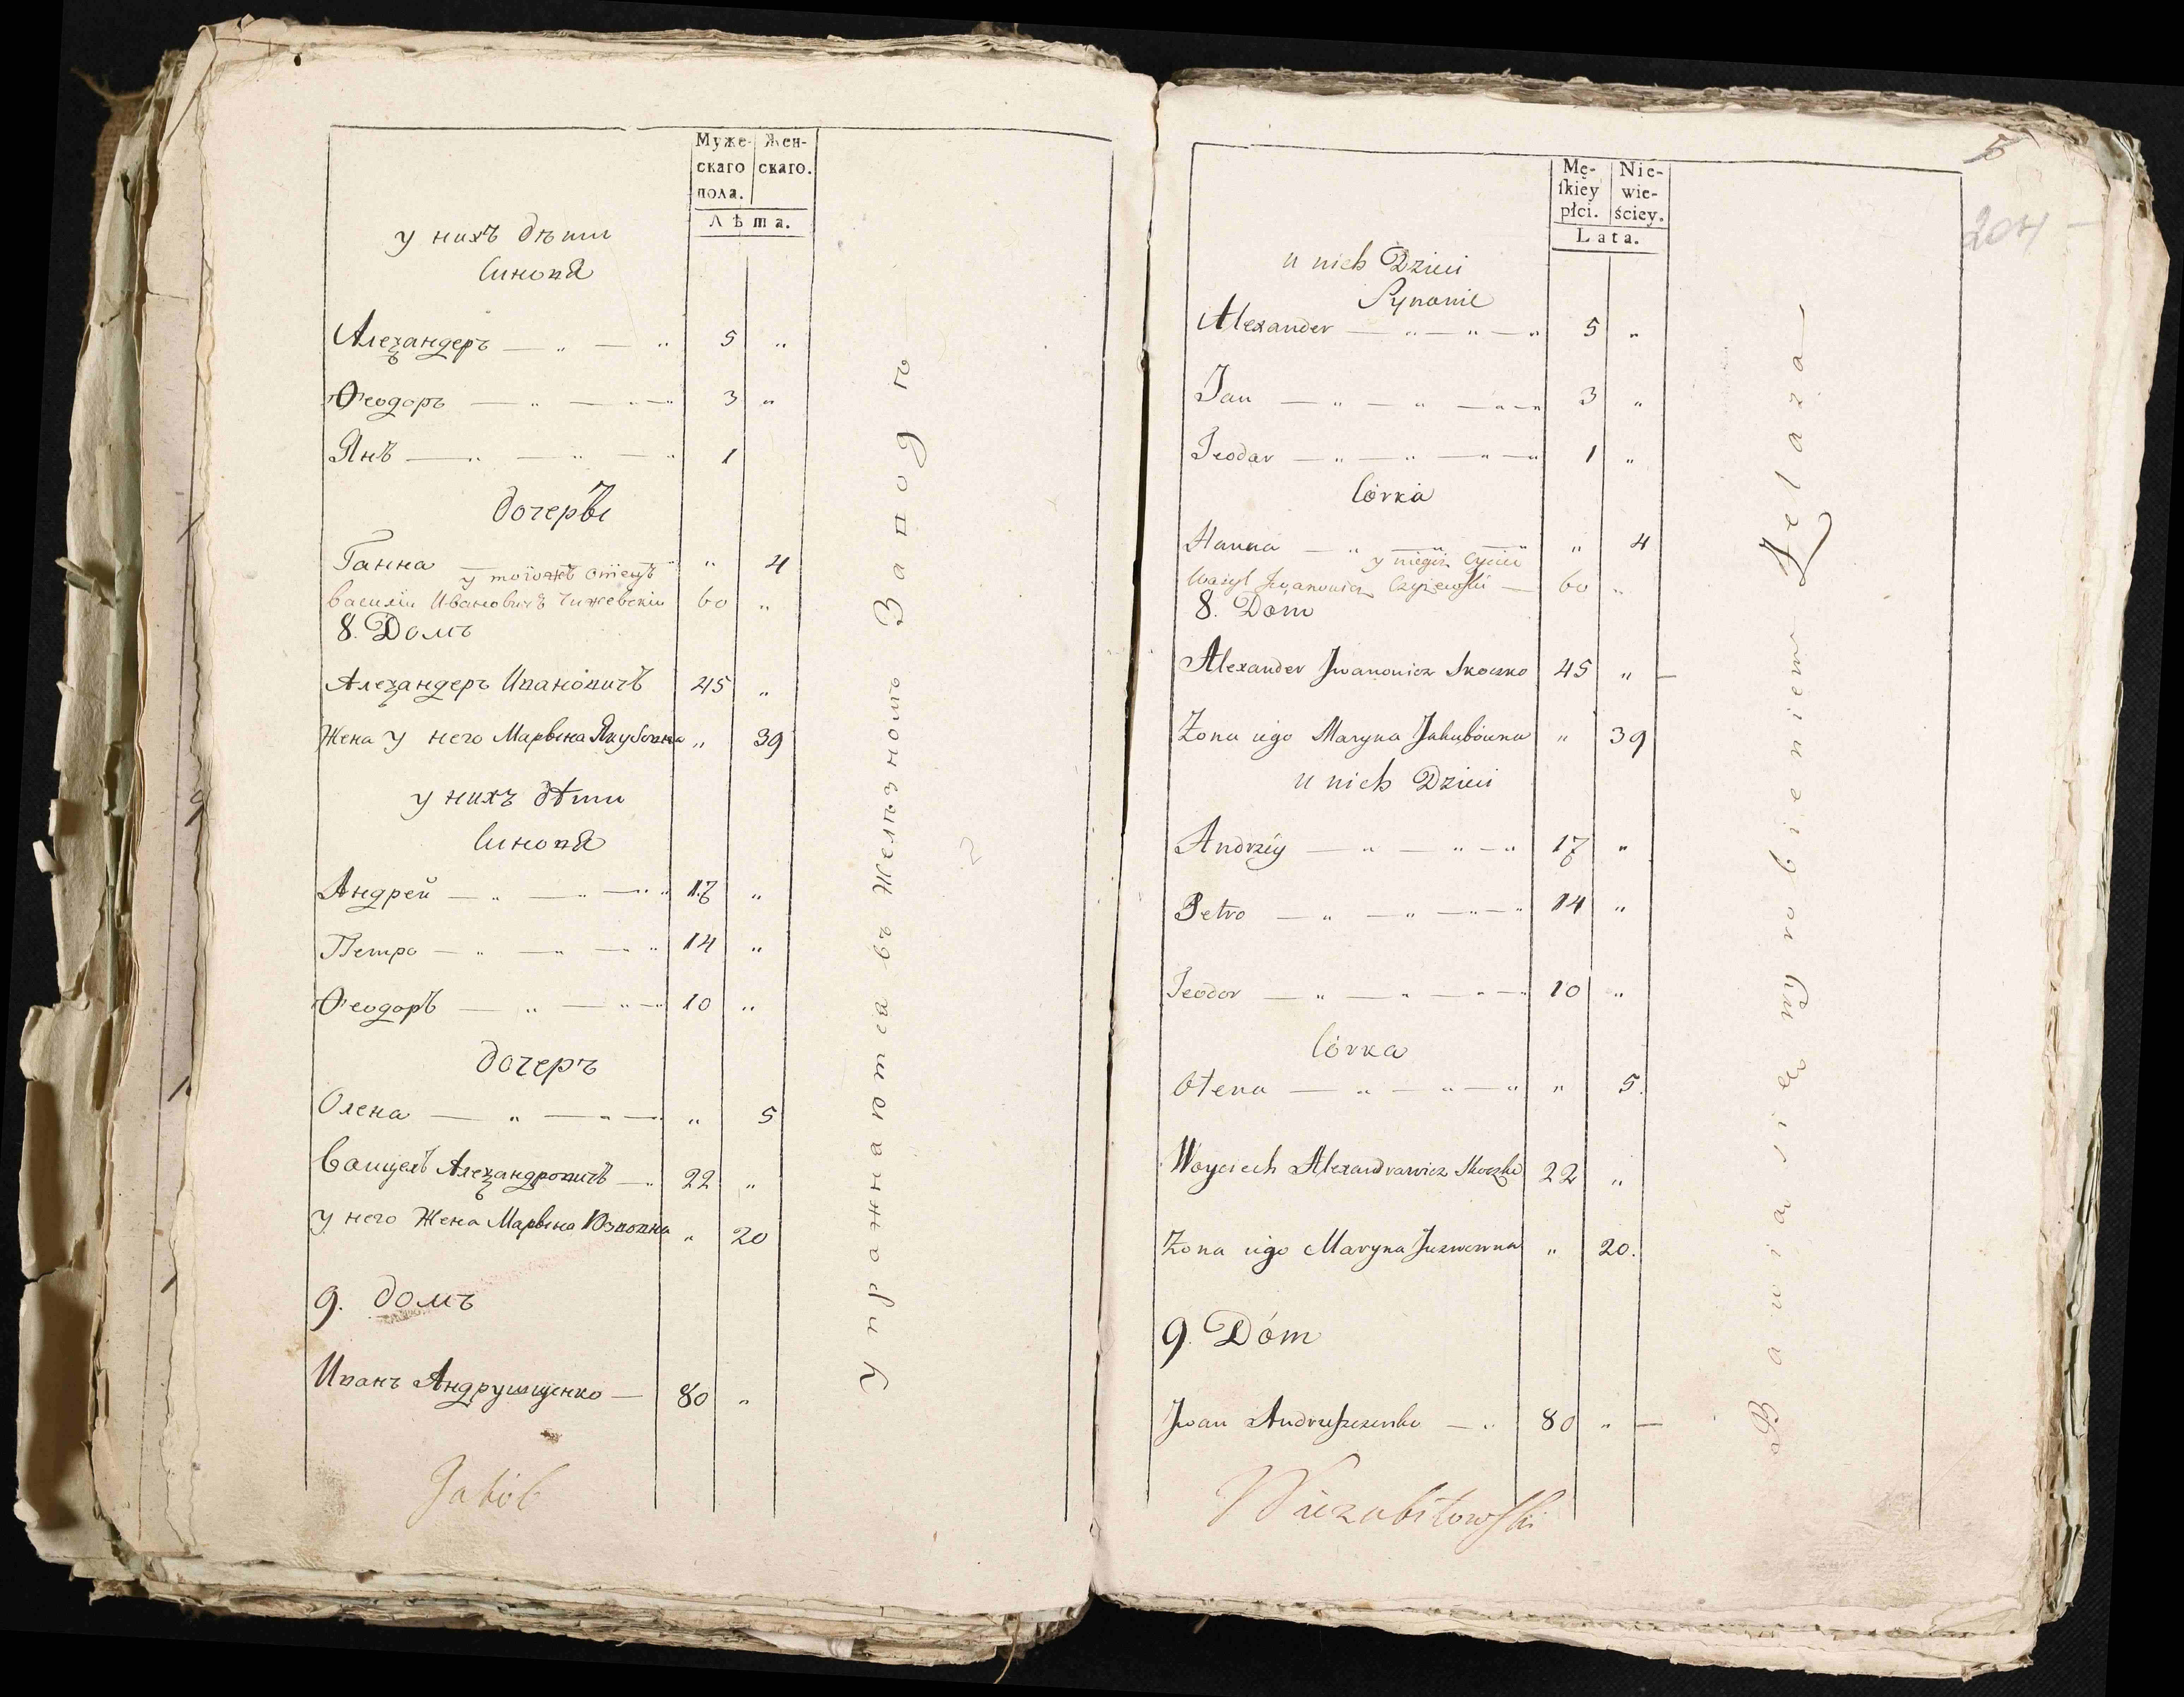 Муже-
скаго
пола.
Жен-
скаго.
Лѣта.
у нихъ дѣти
Синопя
Алеѯандеръ — „ — „ 5 „
Ѳеодоръ — „ — „ — „ 3 „
Янъ — „ — „ — „ 1
дочерѣ
Ганна „ 4
у тогожъ отецъ
Василiи Ивановичъ Чижевскiи 60 „
8. Домъ
Алеѯандеръ Ипанопичъ 45 „
Жена у него Марьіна Якубопна „ 39
у нихъ дѣти
Синопя
Андрей — „ — „ — „ 17 „
Петро — „ — „ — „ 14 „
Ѳеодоръ — „ — „ — „ 10 „
дочеръ
Олена — „ — „ — „ 5
Алеѯандропичъ — „ 22 „
у него Жена Марьіна Юзпопна „ 20
9. домъ
Ипанъ Андрущенко — 80 „
Jakób
Упражнаютса въ Желѣзномъ Заподѣ
5
204
Mę-
ſkiey
płci.
Nie-
wie-
ściey.
Lata.
u nich Dzieci
Synowie
Alexander — „ — „ — „ 5 „
Jan — „ — „ — „ — „ 3 „
Teodor — „ — „ — „ — „ 1 „
Córka
Hanna — „ — „ — „ „ 4
u niegoż Oyciec
Wasyl Jwanowicz Czyżewſki — 60 „
8. Dom
Alexander Jwanowicz Skoczko 45 „ —
Żona iego Maryna Jakubówna „ 39
u nich Dzieci
Andrzéy — „ — „ — „ 17 „
Petro — „ — „ — „ — „ 14 „
Teodor — „ — „ — „ — „ 10 „
Córka
Ołena — „ — „ — „ „ 5.
Woyciech Alexandrowicz Skoczko 22 „
Żona iego Maryna Juzwowna „ 20.
9. Dóm
Jwan Andruſzczenko — „ 80 „ —
Niezabitowſki
Bawia się wyrobieniem Żelaza —